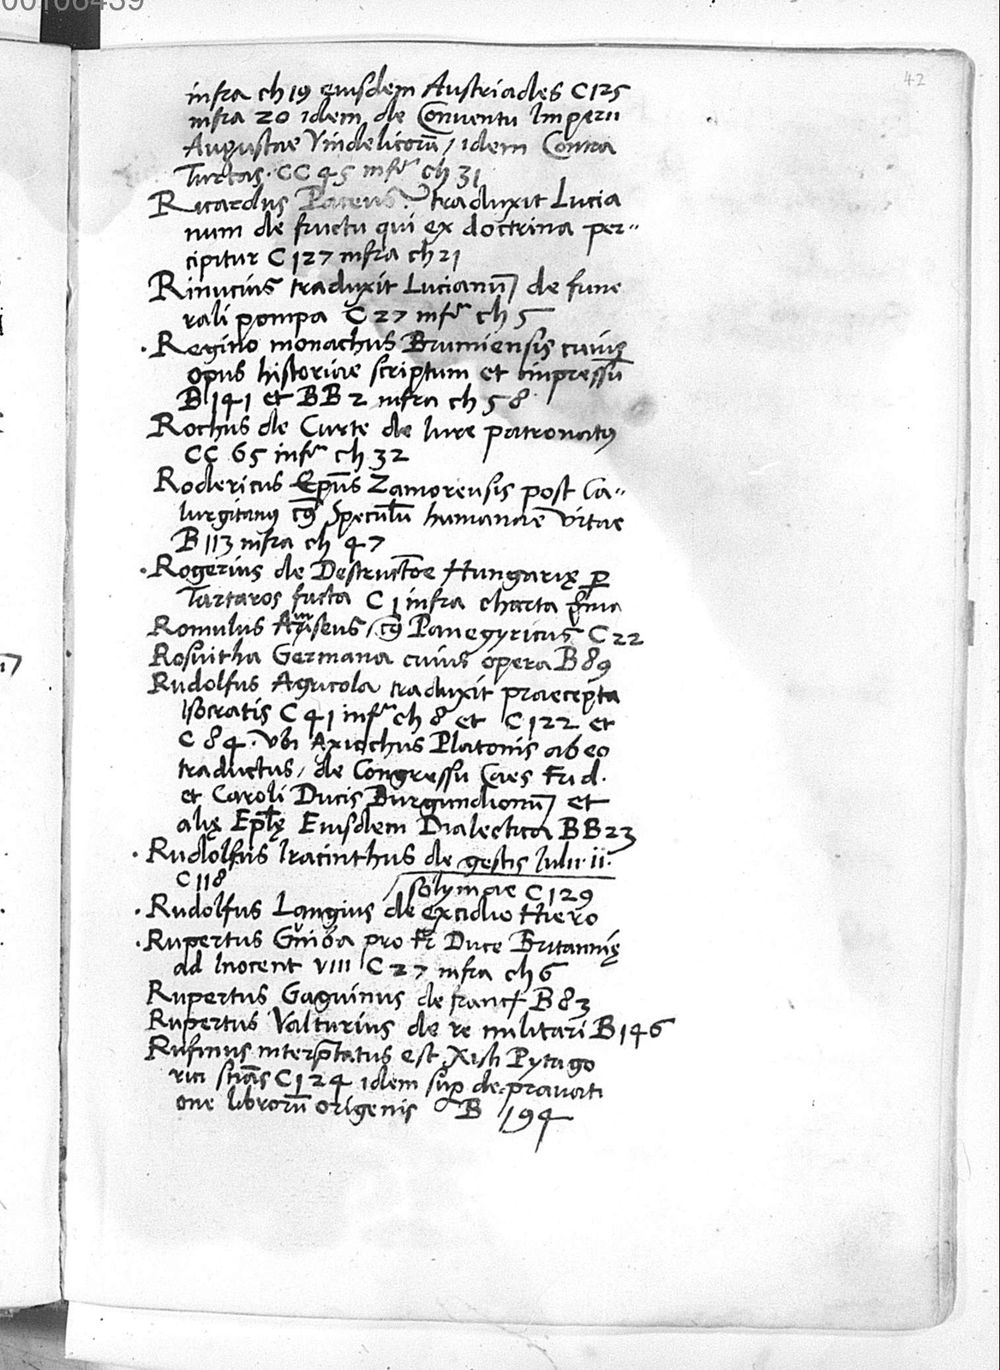 00106439
42
infra ch 19 eiusdem Austriades C 125
infra 20 idem de Conventu Imperii
Augustae Vindelicorū, idem Contra
Turcas. CC 45 infr ch 31
Ricardus Paceus traduxit Lucia
num de fructu qui ex doctrina per-
cipitur C 127 infra ch 21
Rinucius traduxit Lucianū de fune
rali pompa C 27 infr ch 5
· Regino monachus Brumiensis cuius
opus historiae scriptum et impressū
B 141 et BB 2 infra ch 58
Rochus de Curte de Iure patronatus
CC 65 infr ch 32
Rodericus Ep̄us Zamorensis post Ca-
lurgitanus Speculū humanae vitae
B 113 infra ch 47
· Rogerius de Destructōe Hungarię p
Tartaros facta C 1 infra charta
Romulus Panegyricus C 22
Rosuitha Germana cuius opera B 89
Rudolfus Agricola traduxit praecepta
Isocratis C 41 infr ch 8 et C 122 et
C 84. Vbi Axiochus Platonis ab eo
traductus, de Congressu Caes Frid.
et Caroli Ducis Burgundionū et
alię Ep̄lę Eiusdem Dialectica BB 23
· Rudolfus Iracinthus de gestis Iulii ii.
C 118
solymae C 129
· Rudolfus Langius de excidio Hiero
· Rupertus Guiba pro Fr Duce Britannię
ad Inocent VIII C 27 infra ch 6
Rupertus Gaguinus de franc B 83
Rupertus Valturius de re militari B 146
Rufinus interp̄tatus est Xisti Pytago
rici C 124 idem sup de pravati
one librorū origenis B 194